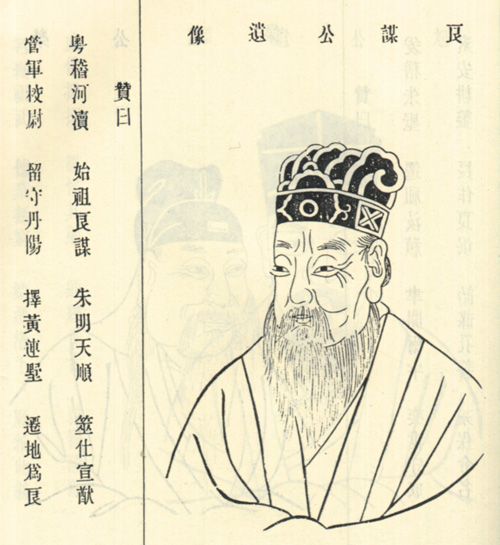 良謀公遺像
贊曰
粵稽河瀆 始祖良謀 朱明天順 筮仕宣猷
管軍校尉 留守丹陽 擇黃連墅 遷地爲良